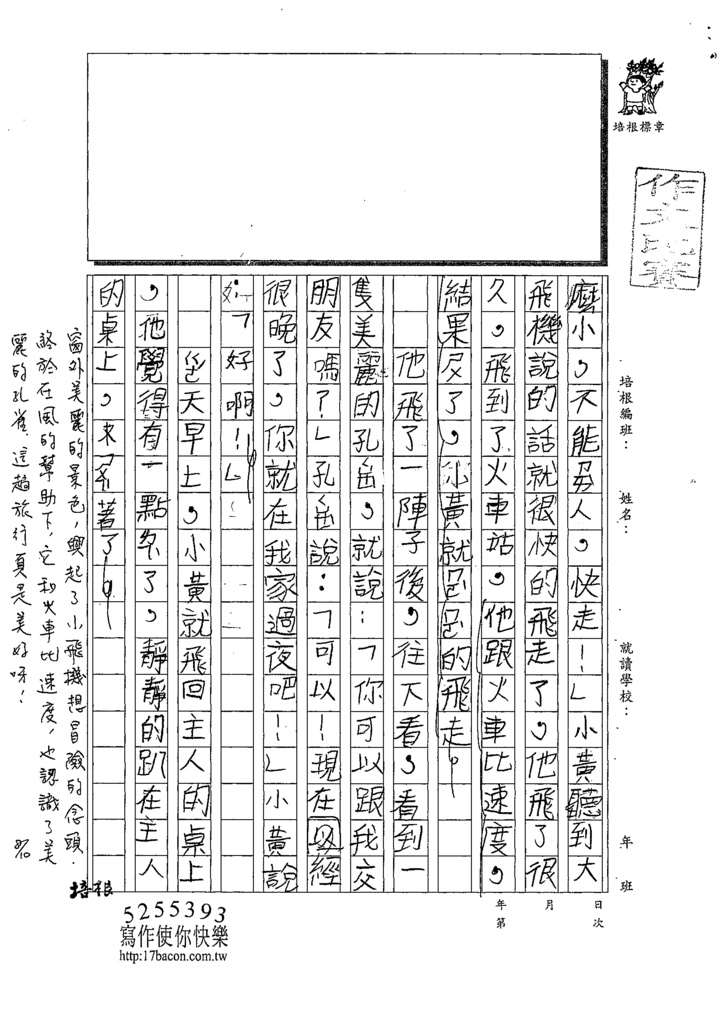 培根標章
作文比賽
培根編班：
姓名：
就讀學校：
年班
日次
月
年第
麼小，不能另人，快走！」小黃聽到大
飛機說的話就很快的飛走了，他飛了很
久，飛到了火車站，他跟火車比速度，
結果反了。小黃就的飛走。
他飛了一陣子後，往下看，看到一
隻美麗的孔，就說：「你可以跟我交
朋友嗎？」孔說：「可以！現在經
很晚了，你就在我家過夜吧！」小黃說
：「好啊！」
天早上，小黃就飛回主人的桌上
，他覺得有一點了，靜靜的趴在主人
的桌上，來著了。
窗外美麗的景色，興起了小飛機想冒險的念頭，
終於在風的幫助下，它和火車比速度，也認識了美
麗的孔雀，這趟旅行真是美好呀！
培根
5255393
寫作使你快樂
http:17bacon.com.tw